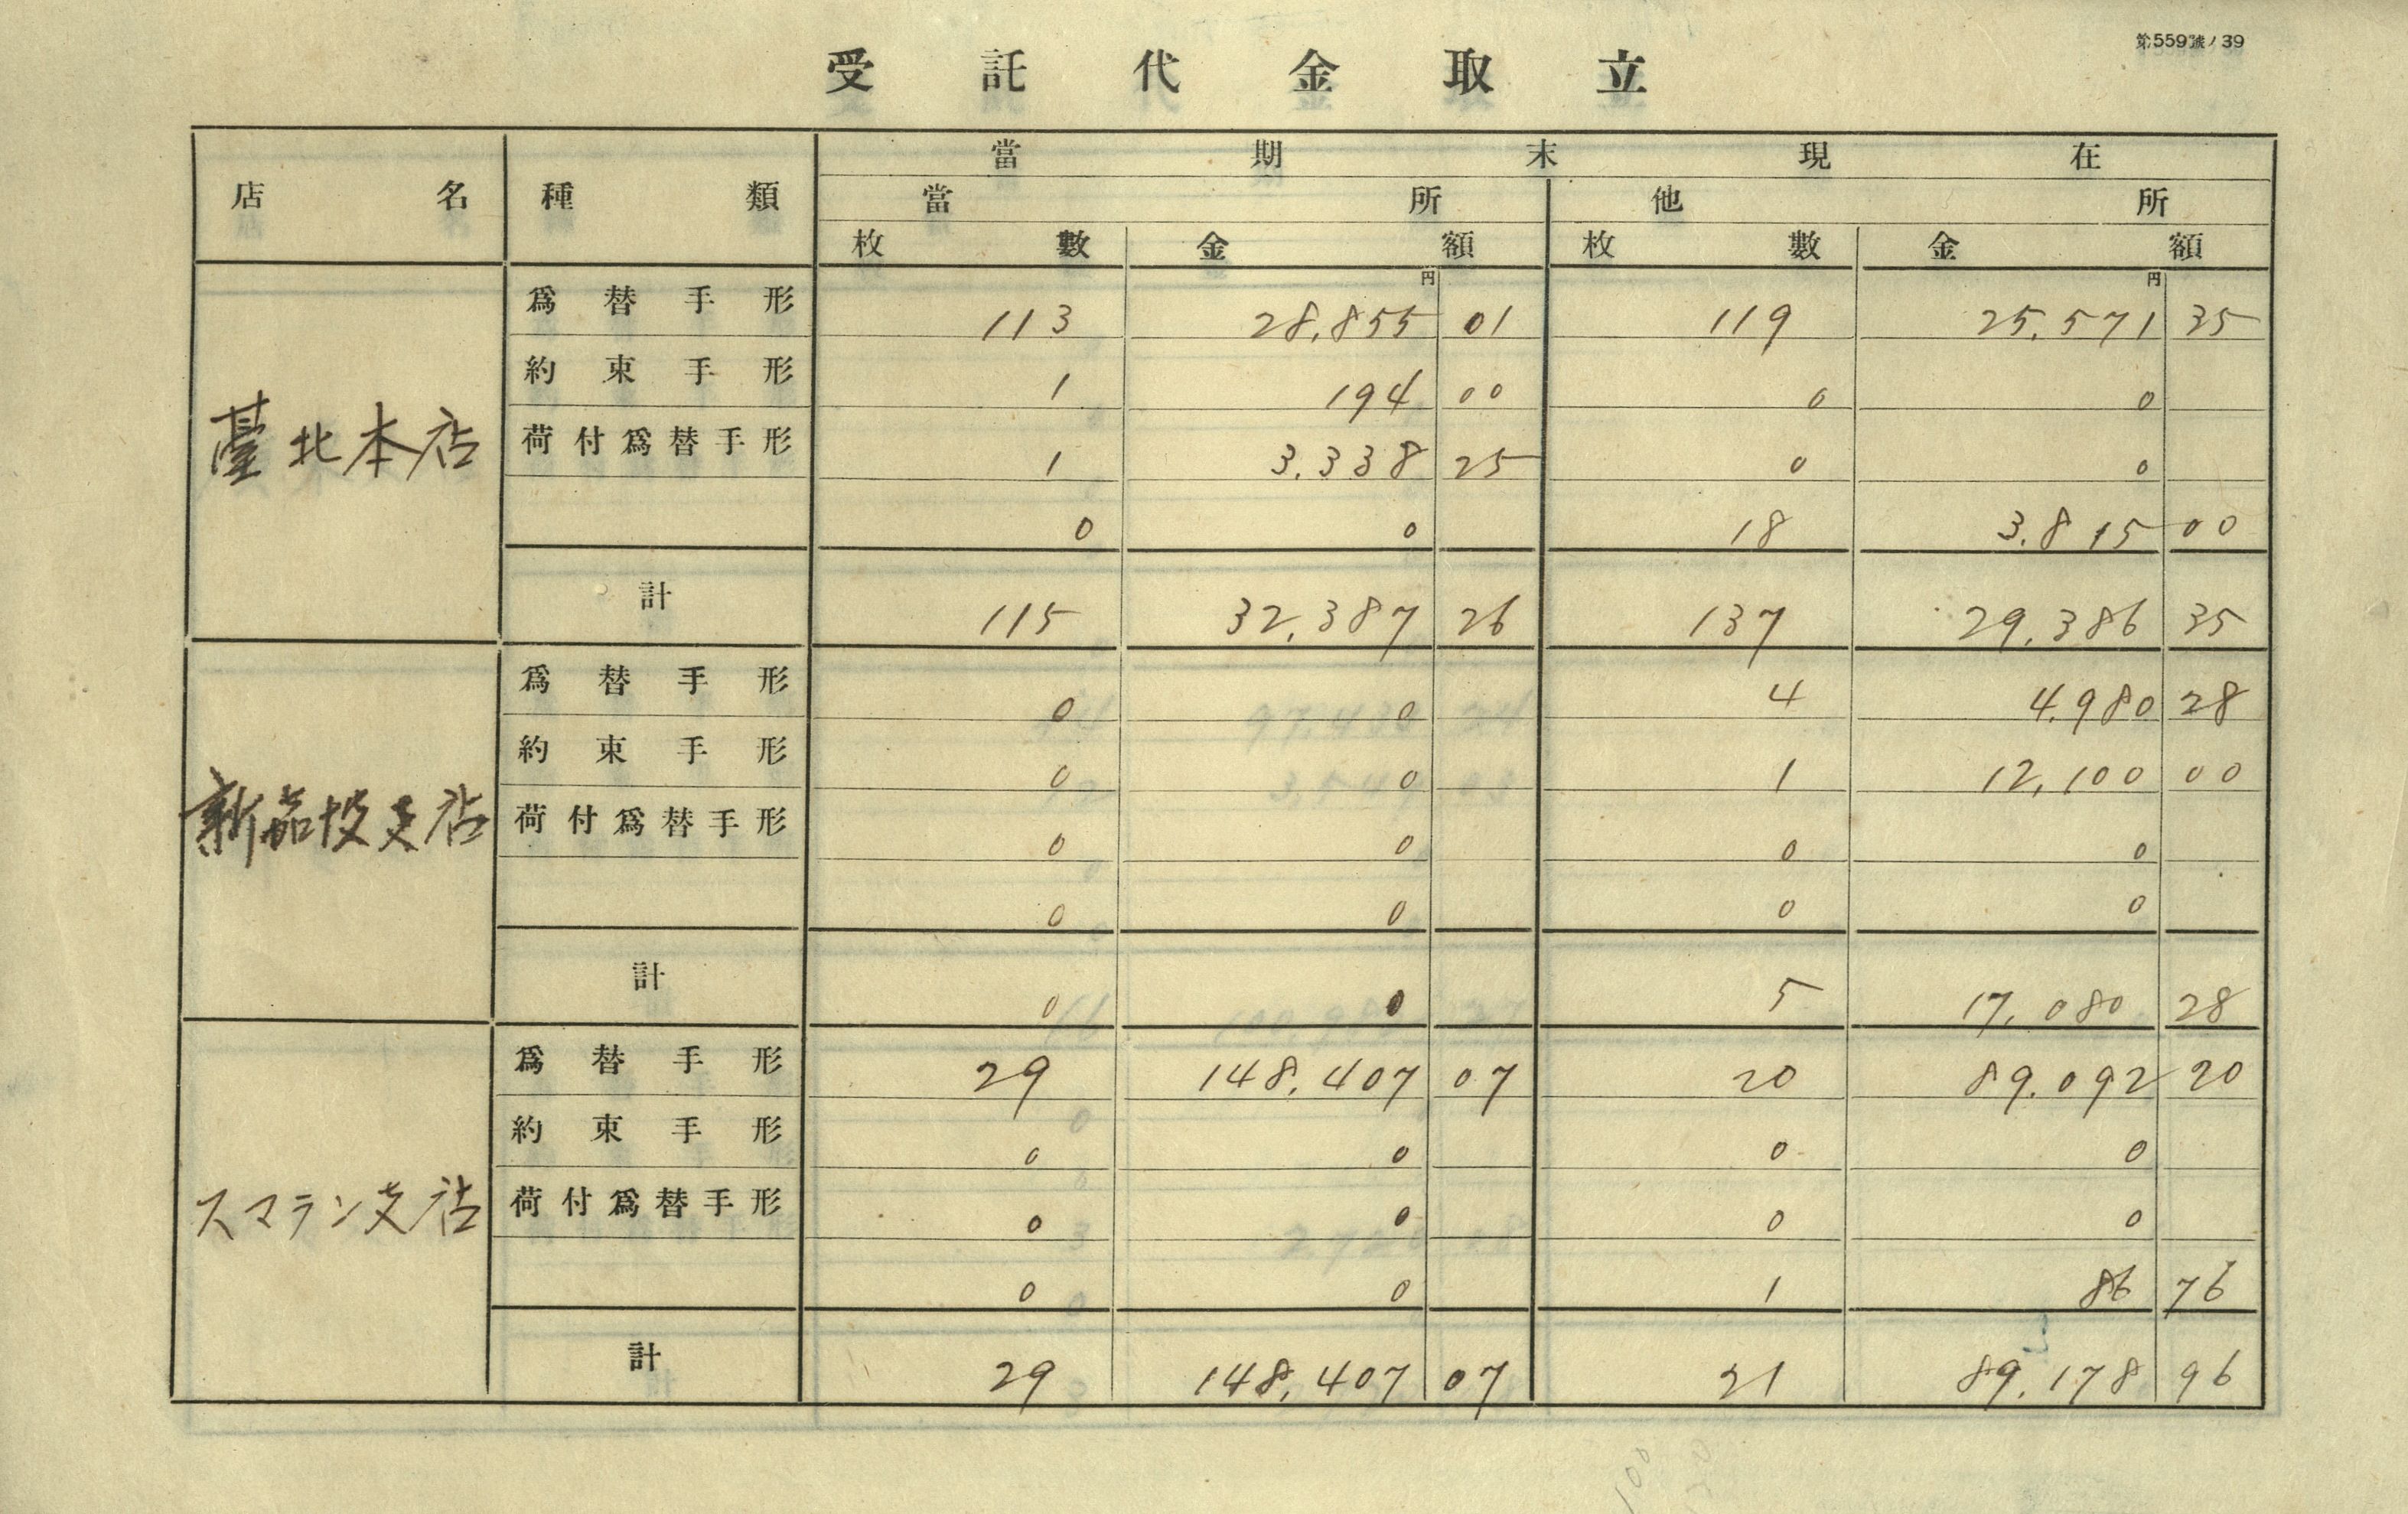 第559號ノ39
受託代金取立
店名 種類 當期末現在
當所 他所
枚數 金額 枚數 金額
円 円
臺北本店
爲替手形 113 28,855 01 119 25,571 35
約束手形 1 194 00 0 0
荷付爲替手形 1 3,338 25 0 0
0 0 18 3,815 00
計 115 32,387 26 137 29,386 35
新嘉坡支店
爲替手形 0 0 4 4,980 28
約束手形 0 0 1 12,100 00
荷付爲替手形 0 0 0 0
0 0 0 0
計 0 0 5 17,080 28
スマラン支店
爲替手形 29 148,407 07 20 89,092 20
約束手形 0 0 0 0
荷付爲替手形 0 0 0 0
0 0 1 86 76
計 29 148,407 07 21 89,178 96